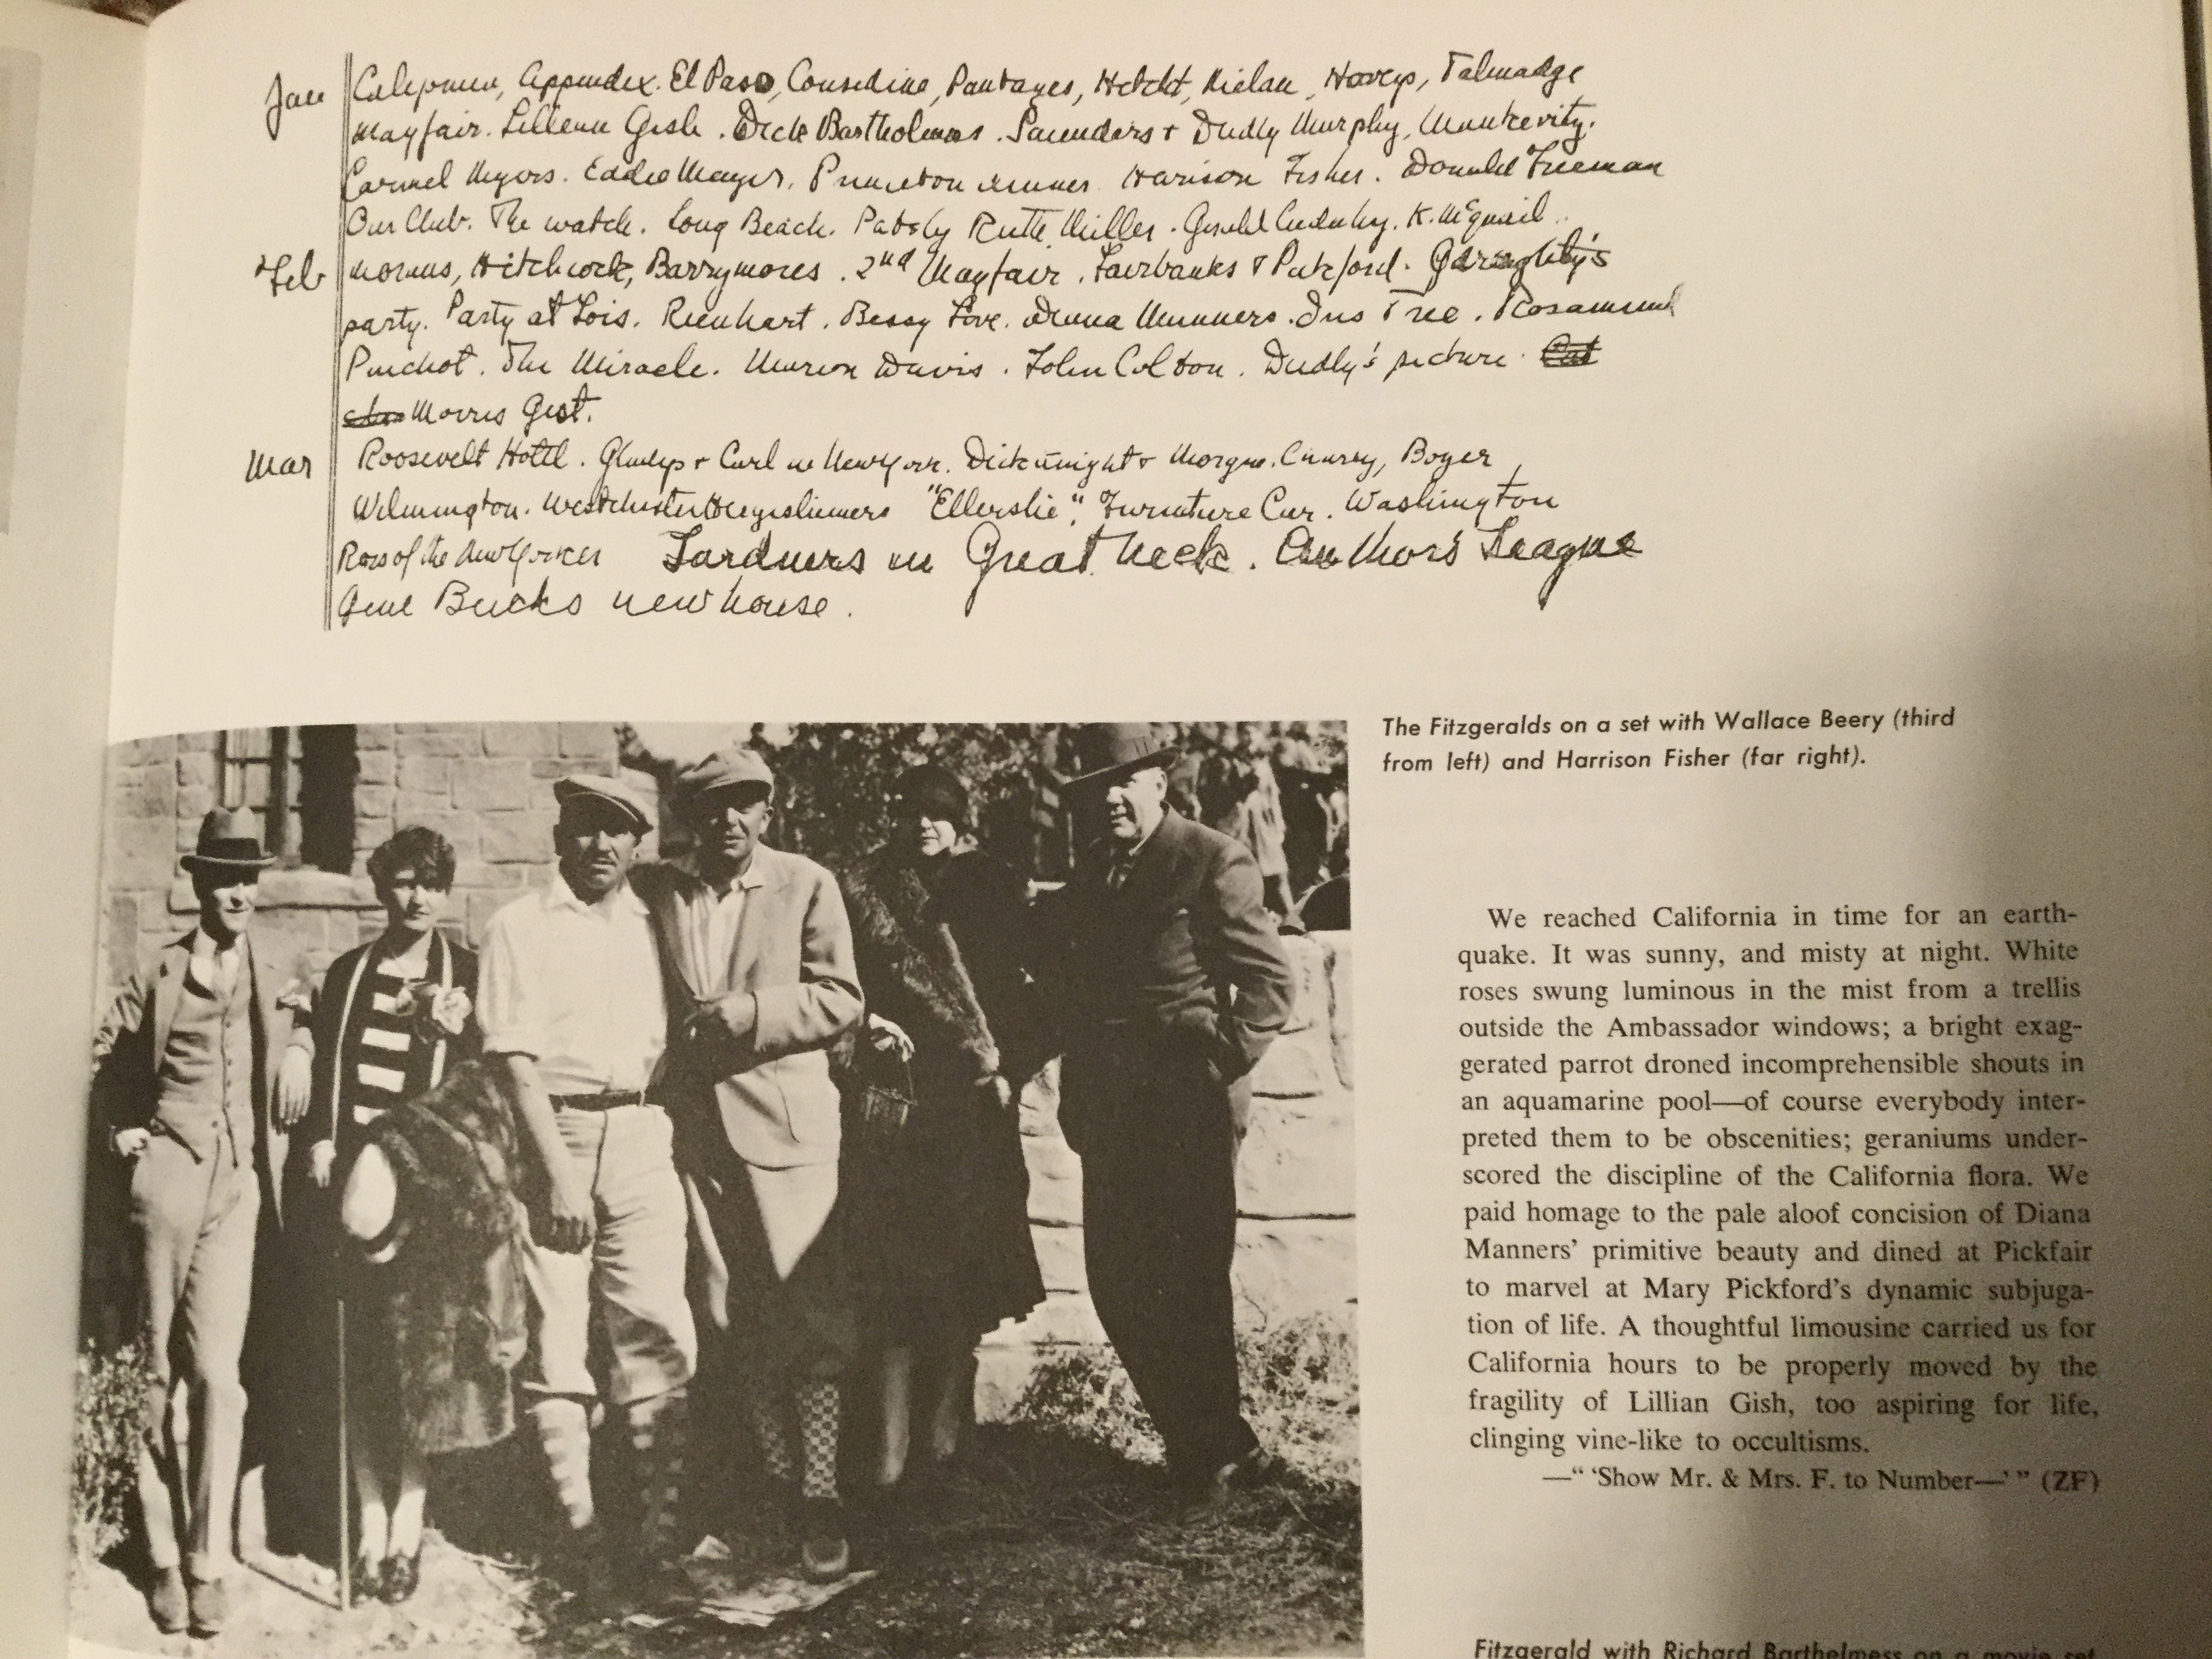 Jan Appendix. El Paso, Considine, Pantages, Hecht, Talmadge
Mayfair. Lillian Gish. Dick Bartholmes. Saunders + Dudly Murphy,
Carmel Myers. Eddie Mayer. Princeton dinner. Harison Fisher. Donald Freeman
Our Club. The watch. Long Beach. Patsy Ruth Miller. K. McQuail..
Feb Hitchcock, Barrymores. 2nd Mayfair. Fairbanks & Pickford.
party. Party at Lois. Rienhart. Bessy Love. Diana Manners. Iris Tree. Rosamund
Pinchot. The Miracle. Marion Davis. John Colton. Dudly's picture.
Morris Gest.
Mar Roosevelt Hotel. Gladys + Carl in New York. Dick Knight + Boyer
Wilmington. "Ellerslie". Furniture Car. Washington
Ross of the New Yorker Lardners in Great Neck. Authors League
Gene Bucks new house.
The Fitzgeralds on a set with Wallace Beery (third
from left) and Harrison Fisher (far right).
We reached California in time for an earth-
quake. It was sunny, and misty at night. White
roses swung luminous in the mist from a trellis
outside the Ambassador windows; a bright exag-
gerated parrot droned incomprehensible shouts in
an aquamarine pool—of course everybody inter-
preted them to be obscenities; geraniums under-
scored the discipline of the California flora. We
paid homage to the pale aloof concision of Diana
Manners' primitive beauty and dined at Pickfair
to marvel at Mary Pickford's dynamic subjuga-
tion of life. A thoughtful limousine carried us for
California hours to be properly moved by the
fragility of Lillian Gish, too aspiring for life,
clinging vine-like to occultisms.
—" 'Show Mr. & Mrs. F. to Number—' " (ZF)
Fitzgerald with Richard Barthelmess on a movie set